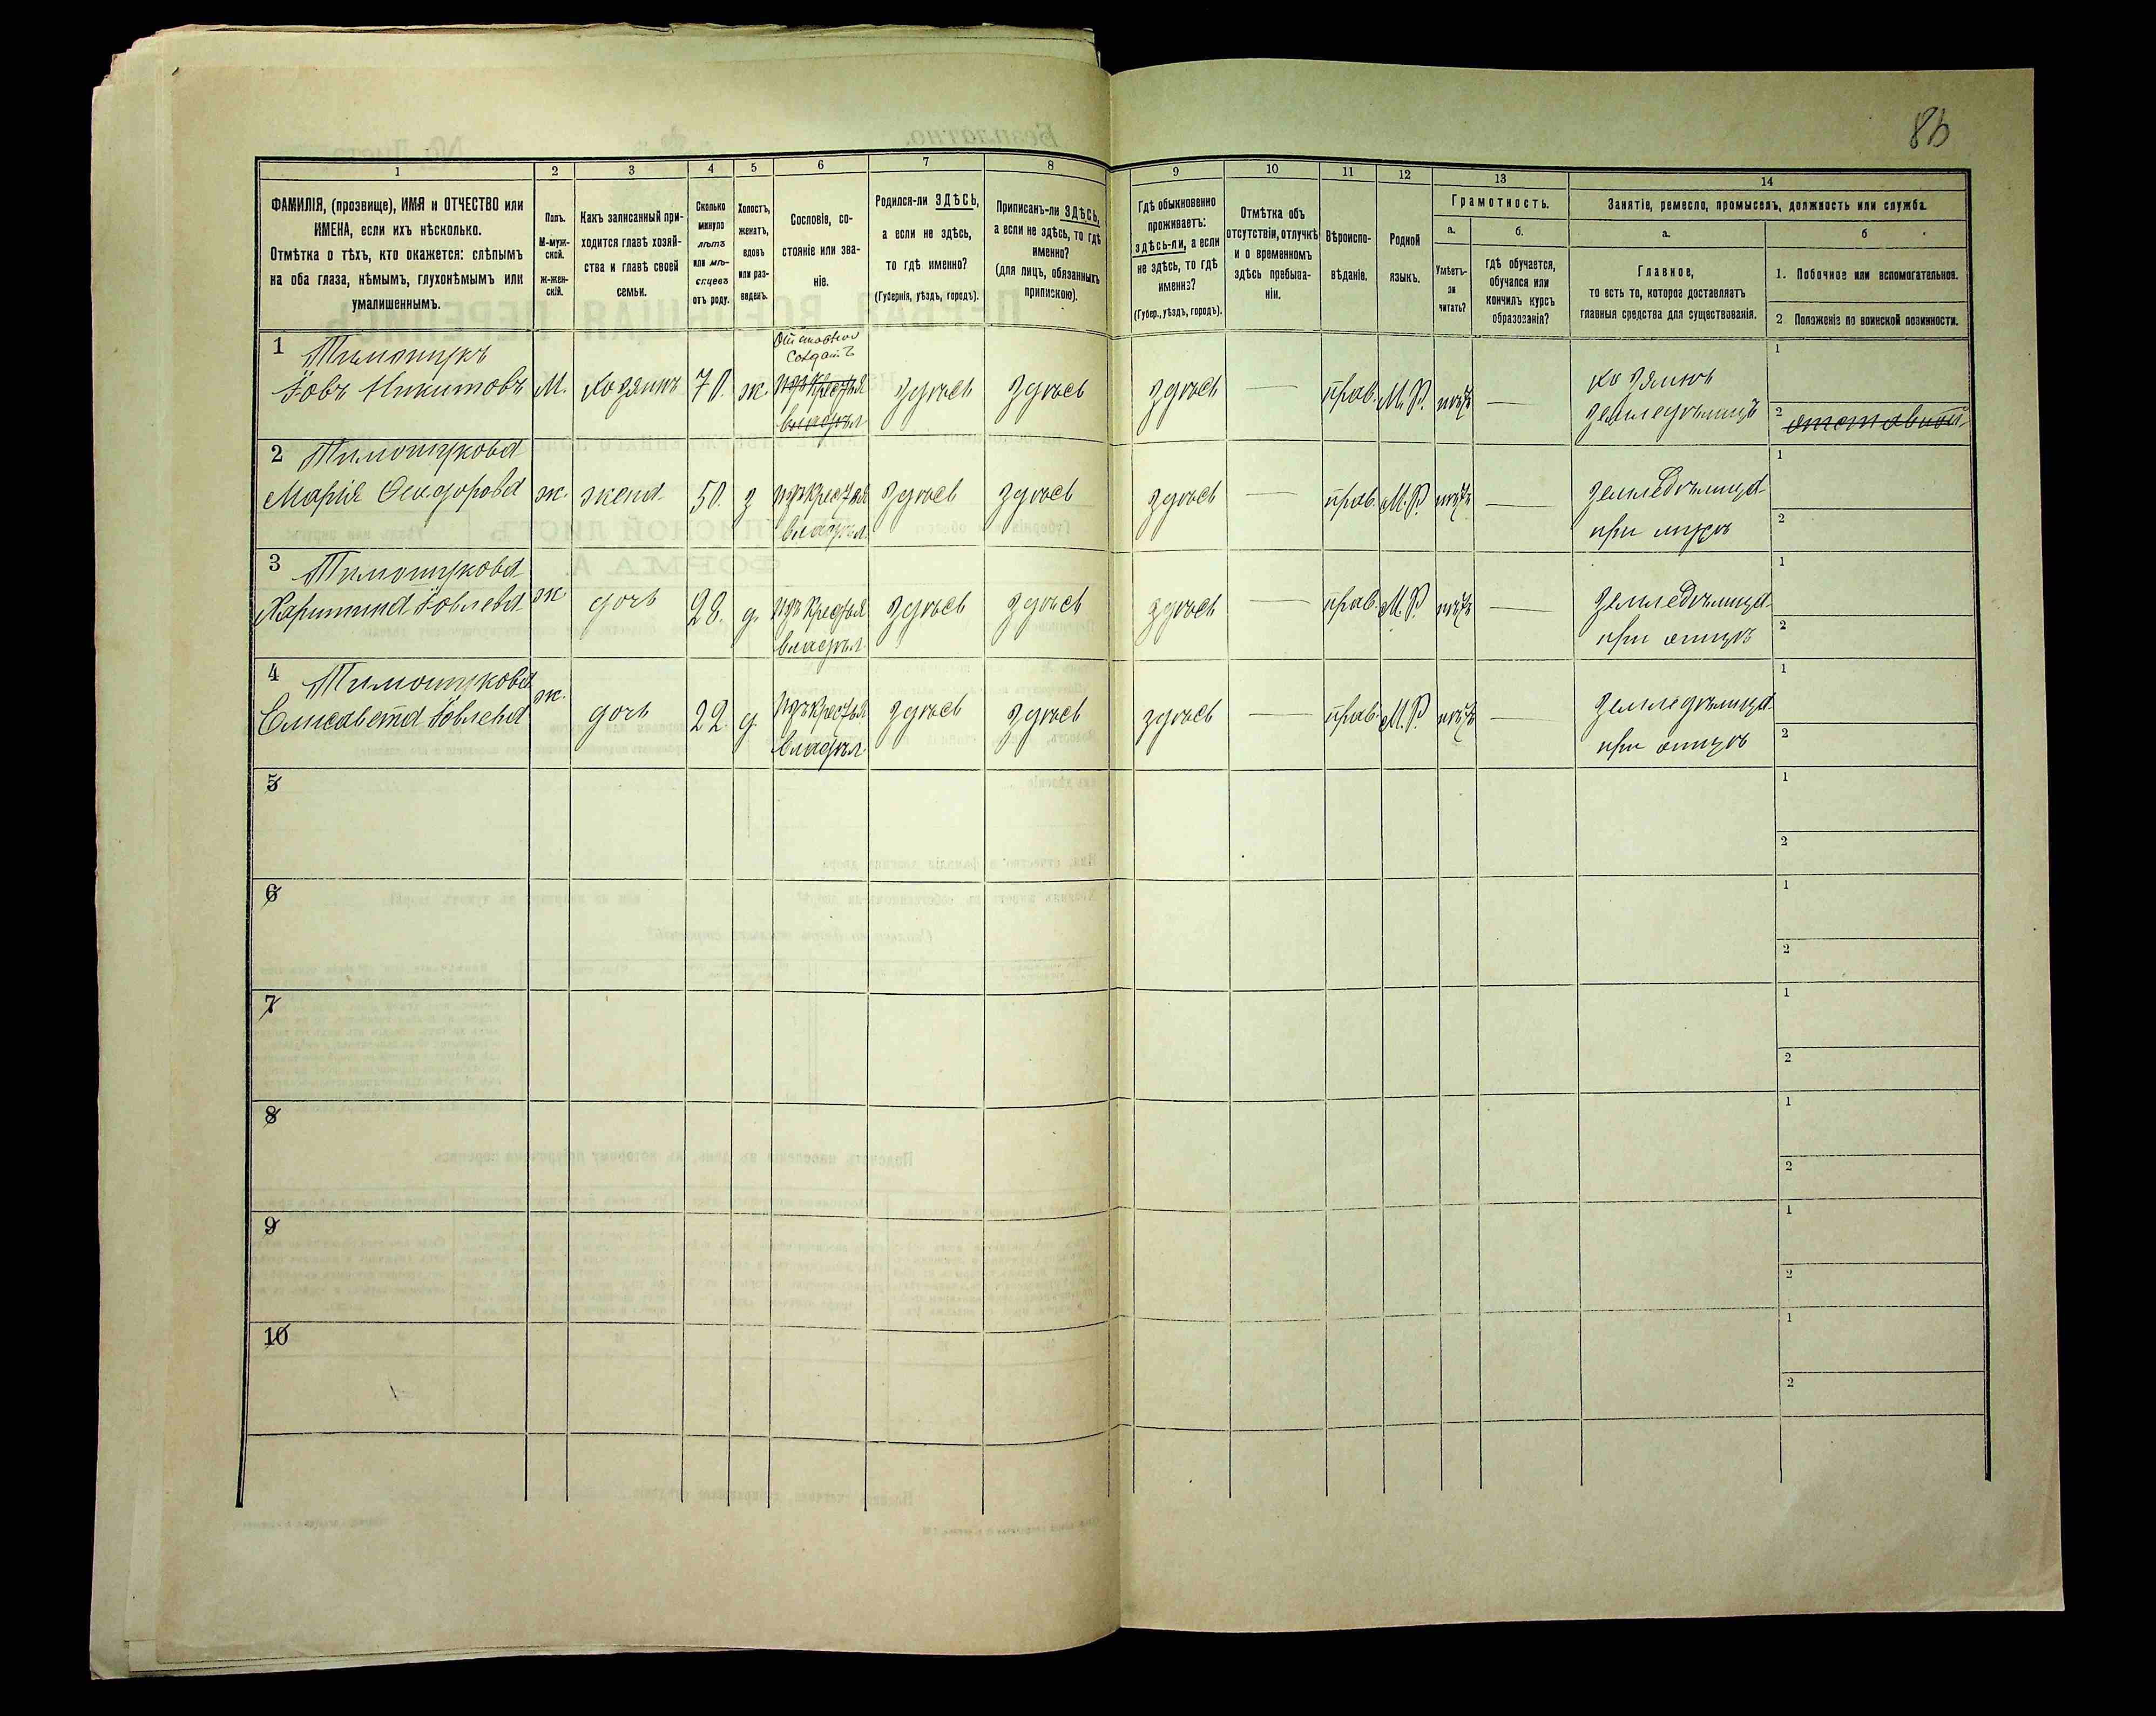 8б
1
2
3
4
5
6
7
8
9
10
11
12
13
14
ФАМИЛІЯ, (прозвище), ИМЯ и ОТЧЕСТВО или
ИМЕНА, если ихъ нѣсколько.
Отмѣтка о тѣхъ, кто окажется: слѣпымъ
на оба глаза, нѣмымъ, глухонѣмымъ или
умалишеннымъ.
Полъ.
М-муж-
ской.
Ж-жен-
скій.
Какъ записанный при-
ходится главѣ хозяй-
ства и главѣ своей
семьи.
Сколько
минуло
лѣтъ
или мѣ-
сяцевъ
отъ роду.
Холостъ,
женатъ,
вдовъ
или раз-
веденъ.
Сословіе, со-
стояніе или зва-
ніе.
Родился-ли ЗДѢСЬ,
а если не здѣсь,
то гдѣ именно?
(Губернія, уѣздъ, городъ).
Приписанъ-ли ЗДѢСЬ,
а если не здѣсь, то гдѣ
именно?
(для лицъ, обязанныхъ
припискою).
Гдѣ обыкновенно
проживаетъ:
здѣсь-ли, а если
не здѣсь, то гдѣ
именно?
(Губер., уѣздъ, городъ).
Отмѣтка объ
отсутствіи, отлучкѣ
и о временномъ
здѣсь пребыва-
ніи.
Вѣроиспо-
вѣданіе.
Родной
языкъ.
Грамотность.
а.
Умѣетъ-
ли
читать?
б.
гдѣ обучается,
обучался или
кончилъ курсъ
образованія?
Занятіе, ремесло, промыселъ, должность или служба.
а.
Главное,
то есть то, которое доставляетъ
главныя средства для существованія.
б
1. Побочное или вспомогательное.
2 Положеніе по воинской повинности.
1 Тимощукъ
Іовъ Никитовъ М. хозяинъ 70. ж. Отставной
Солдатъ
изъ Крестья
владѣл. здѣсь здѣсь здѣсь — прав. М.Р. нѣтъ — хозяинъ
земледѣлецъ
1
2 отставной
2 Тимощукова
Марія Ѳеодорова ж. жена 50. з изъ Крестья
владѣл. здѣсь здѣсь здѣсь — прав. М.Р. нѣтъ — земледѣлица
при мужѣ
1
2
3 Тимощукова
Харитина Іовлева ж. дочь 28. д. изъ Крестья
владѣл. здѣсь здѣсь здѣсь — прав. М.Р. нѣтъ — земледѣлица
при отцѣ
1
2
4 Тимощукова
Елисавета Іовлева ж. дочь 22 д. изъ Крестья
владѣл. здѣсь здѣсь здѣсь — прав. М.Р. нѣтъ — земледѣлица
при отцѣ
1
2
5
1
2
6
1
2
7
1
2
8
1
2
9
1
2
10
1
2